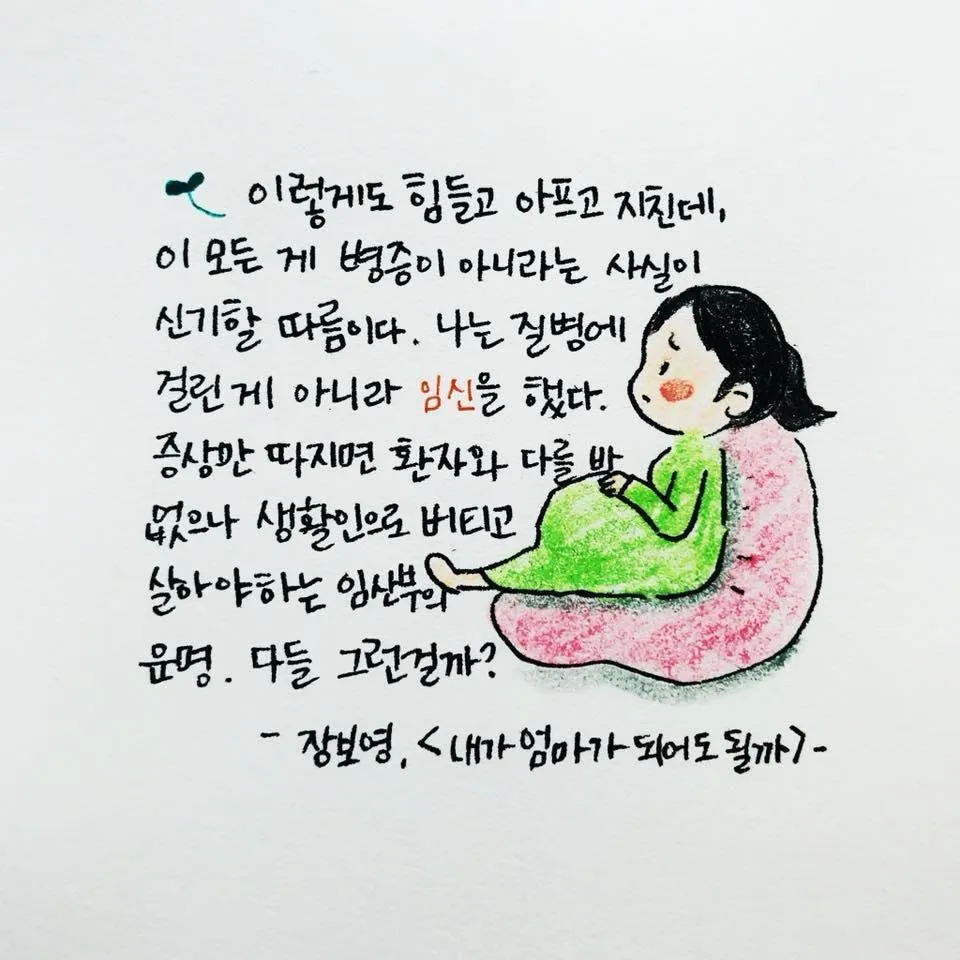 이렇게도 힘들고 아프고 지친데,
이 모든 게 병증이 아니라는 사실이
신기할 따름이다. 나는 질병에
걸린 게 아니라 임신을 했다.
증상만 따지면 환자와 다를 바
없으나 생활인으로 버티고
살아야하는 임산부의
운명. 다들 그런걸까?
- 장보영, <내가 엄마가 되어도 될까> -